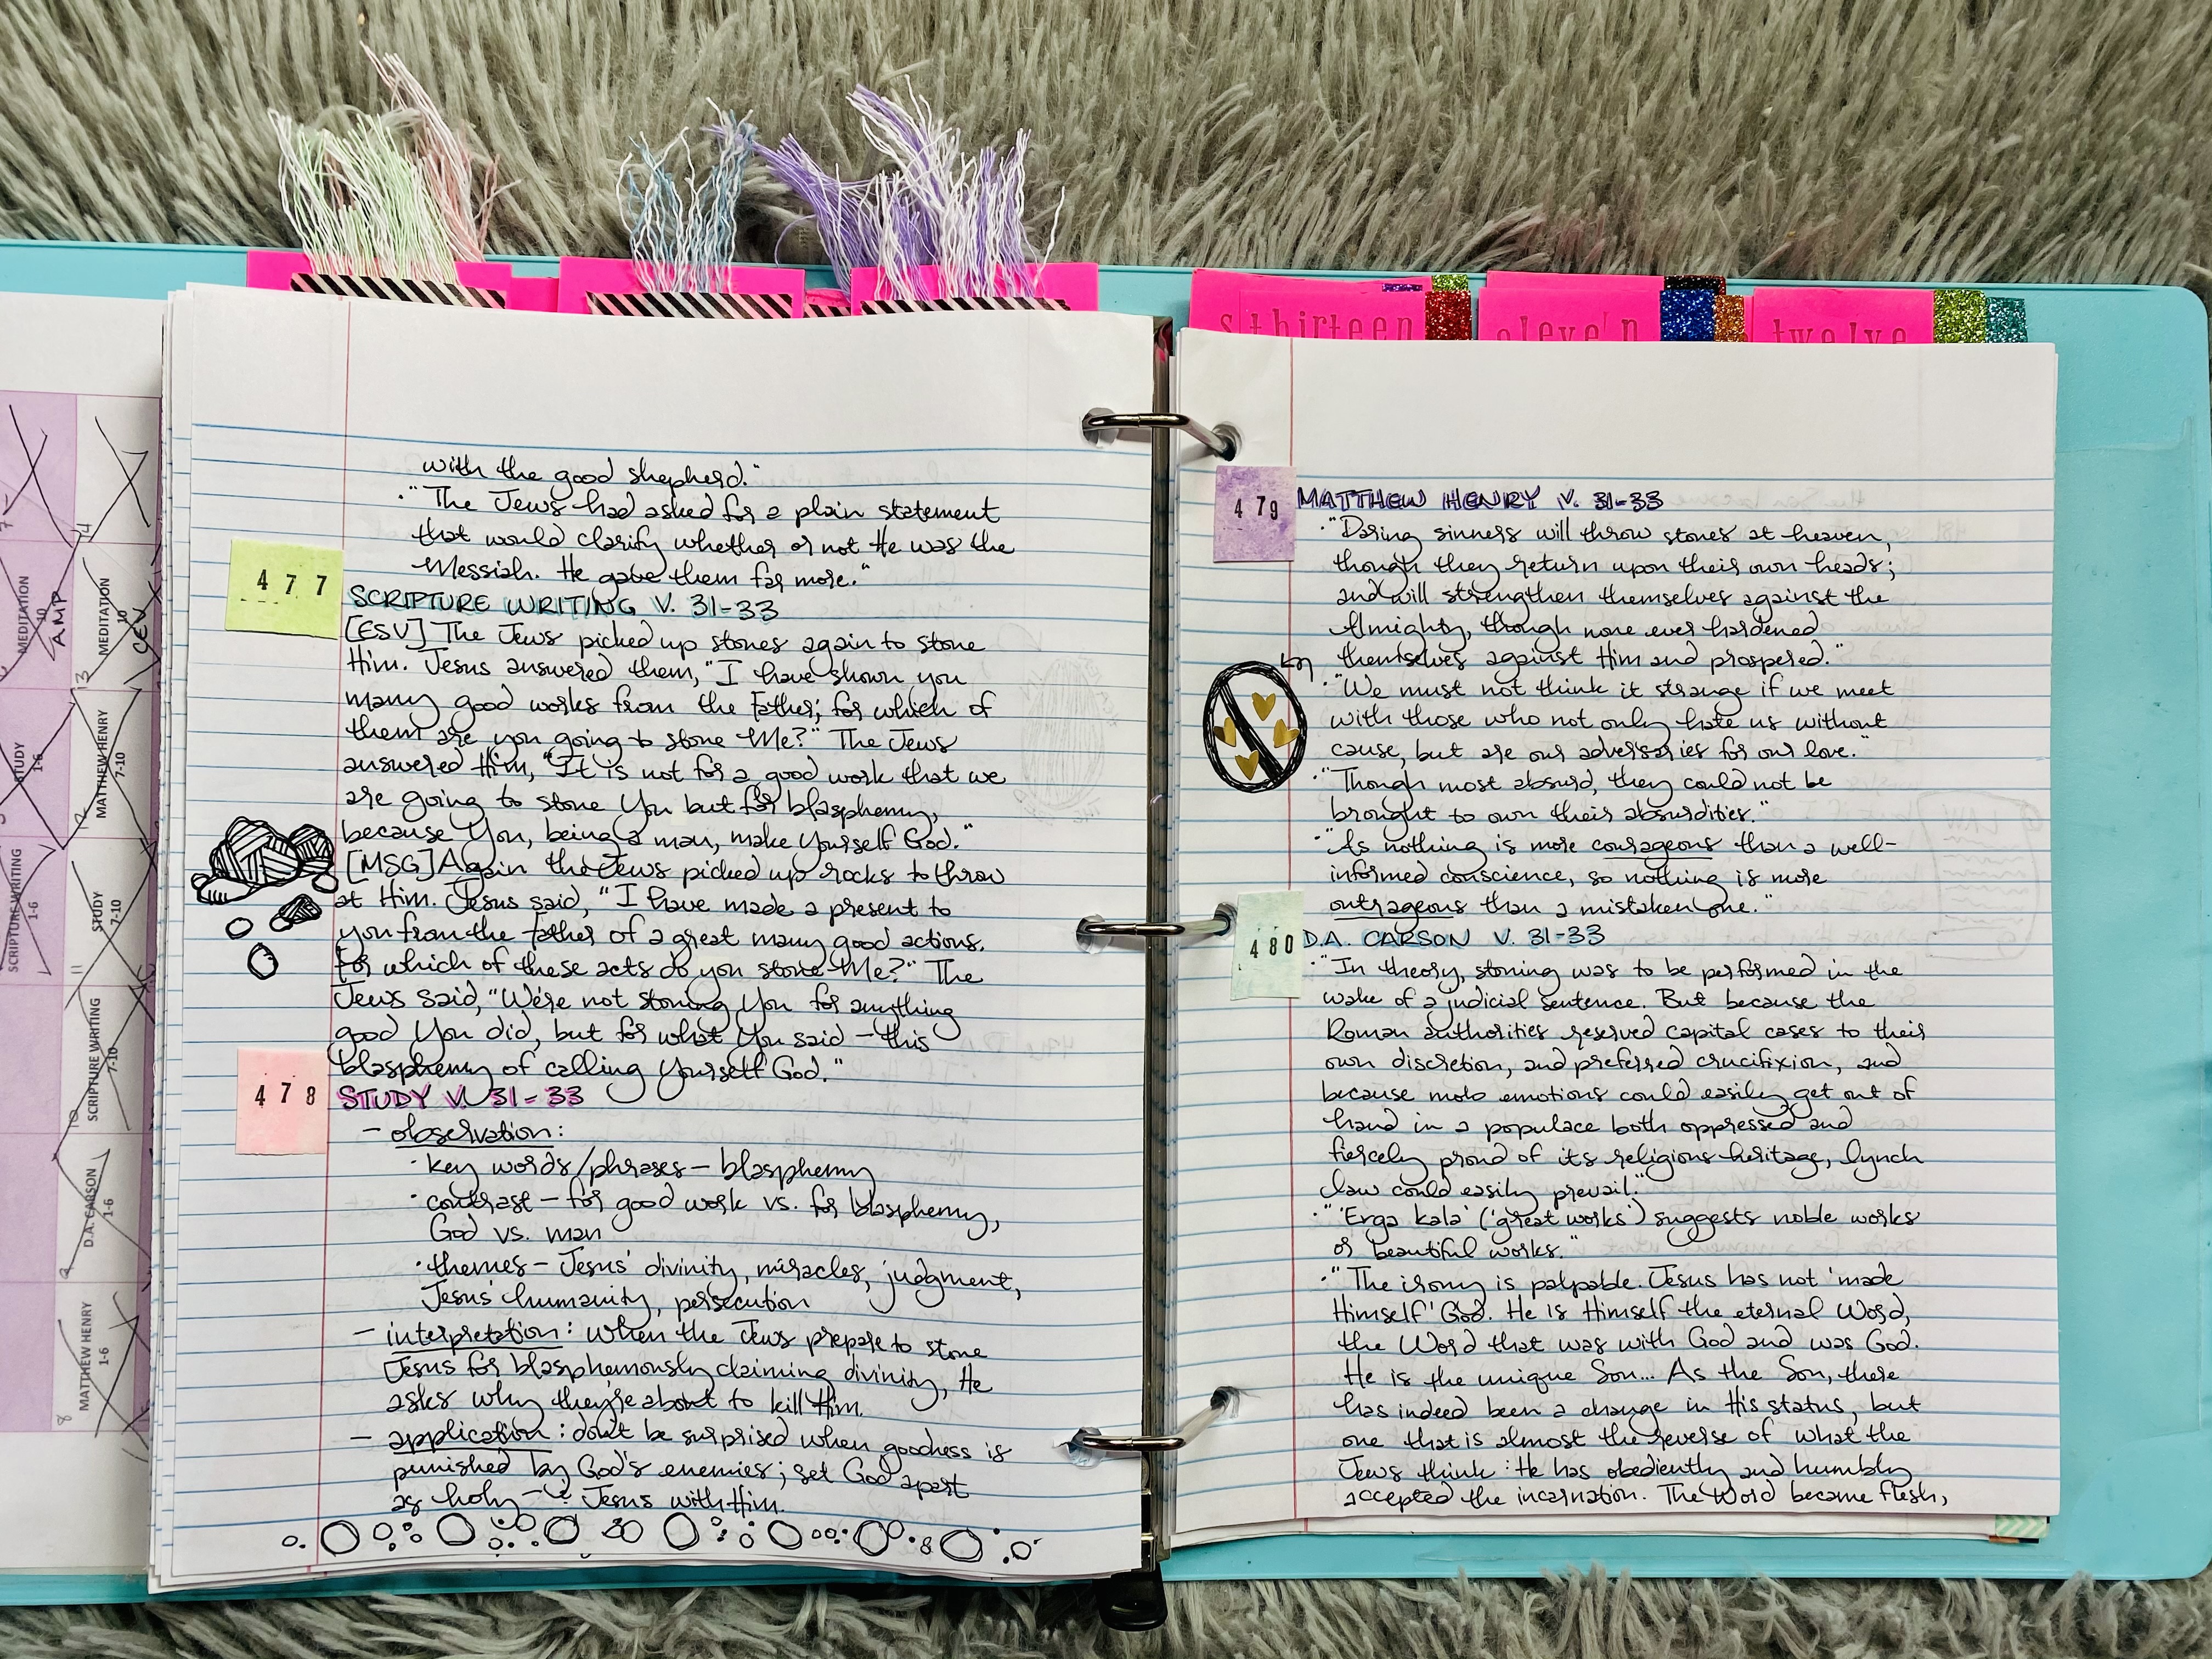 s thirteen
eleven
twelve
with the good shepherd."
· "The Jews had asked for a plain statement
that would clarify whether or not He was the
Messiah. He gave them far more."
477
SCRIPTURE WRITING V. 31-33
[ESV] The Jews picked up stones again to stone
Him. Jesus answered them, "I have shown you
many good works from the Father; for which of
them are you going to stone Me?" The Jews
answered Him, "It is not for a good work that we
are going to stone You but for blasphemy,
because You, being a man, make Yourself God."
[MSG] Again the Jews picked up rocks to throw
at Him. Jesus said, "I have made a present to
you from the Father of a great many good actions.
For which of these acts do you stone Me?" The
Jews said, "We're not stoning You for anything
good You did, but for what You said – this
blasphemy of calling Yourself God."
478
STUDY V. 31-33
– observation:
· key words/phrases – blasphemy
· contrast – for good work vs. for blasphemy,
God vs. man
· themes – Jesus' divinity, miracles, judgment,
Jesus' humanity, persecution
– interpretation: when the Jews prepare to stone
Jesus for blasphemously claiming divinity, He
asks why they're about to kill Him.
– application: don't be surprised when goodness is
punished by God's enemies; set God apart
as holy – & Jesus with Him.
479
MATTHEW HENRY V. 31-33
· "Daring sinners will throw stones at heaven,
though they return upon their own heads;
and will strengthen themselves against the
Almighty, though none ever hardened
themselves against Him and prospered."
· "We must not think it strange if we meet
with those who not only hate us without
cause, but are our adversaries for our love."
· "Though most absurd, they could not be
brought to own their absurdities."
· "As nothing is more courageous than a well-
informed conscience, so nothing is more
outrageous than a mistaken one."
480
D.A. CARSON V. 31-33
· "In theory, stoning was to be performed in the
wake of a judicial sentence. But because the
Roman authorities reserved capital cases to their
own discretion, and preferred crucifixion, and
because mob emotions could easily get out of
hand in a populace both oppressed and
fiercely proud of its religious heritage, lynch
law could easily prevail."
· "'Erga kala' ('great works') suggests noble works
or beautiful works."
· "The irony is palpable. Jesus has not 'made
Himself' God. He is Himself the eternal Word,
the Word that was with God and was God.
He is the unique Son... As the Son, there
has indeed been a change in His status, but
one that is almost the reverse of what the
Jews think: He has obediently and humbly
accepted the incarnation. The Word became flesh,
MEDITATION
10
AMP
STUDY
1-6
SCRIPTURE WRITING
1-6
14
MEDITATION
10
CEV
13
MATTHEW HENRY
7-10
12
STUDY
7-10
11
SCRIPTURE WRITING
7-10
10
D.A. CARSON
1-6
9
MATTHEW HENRY
1-6
8